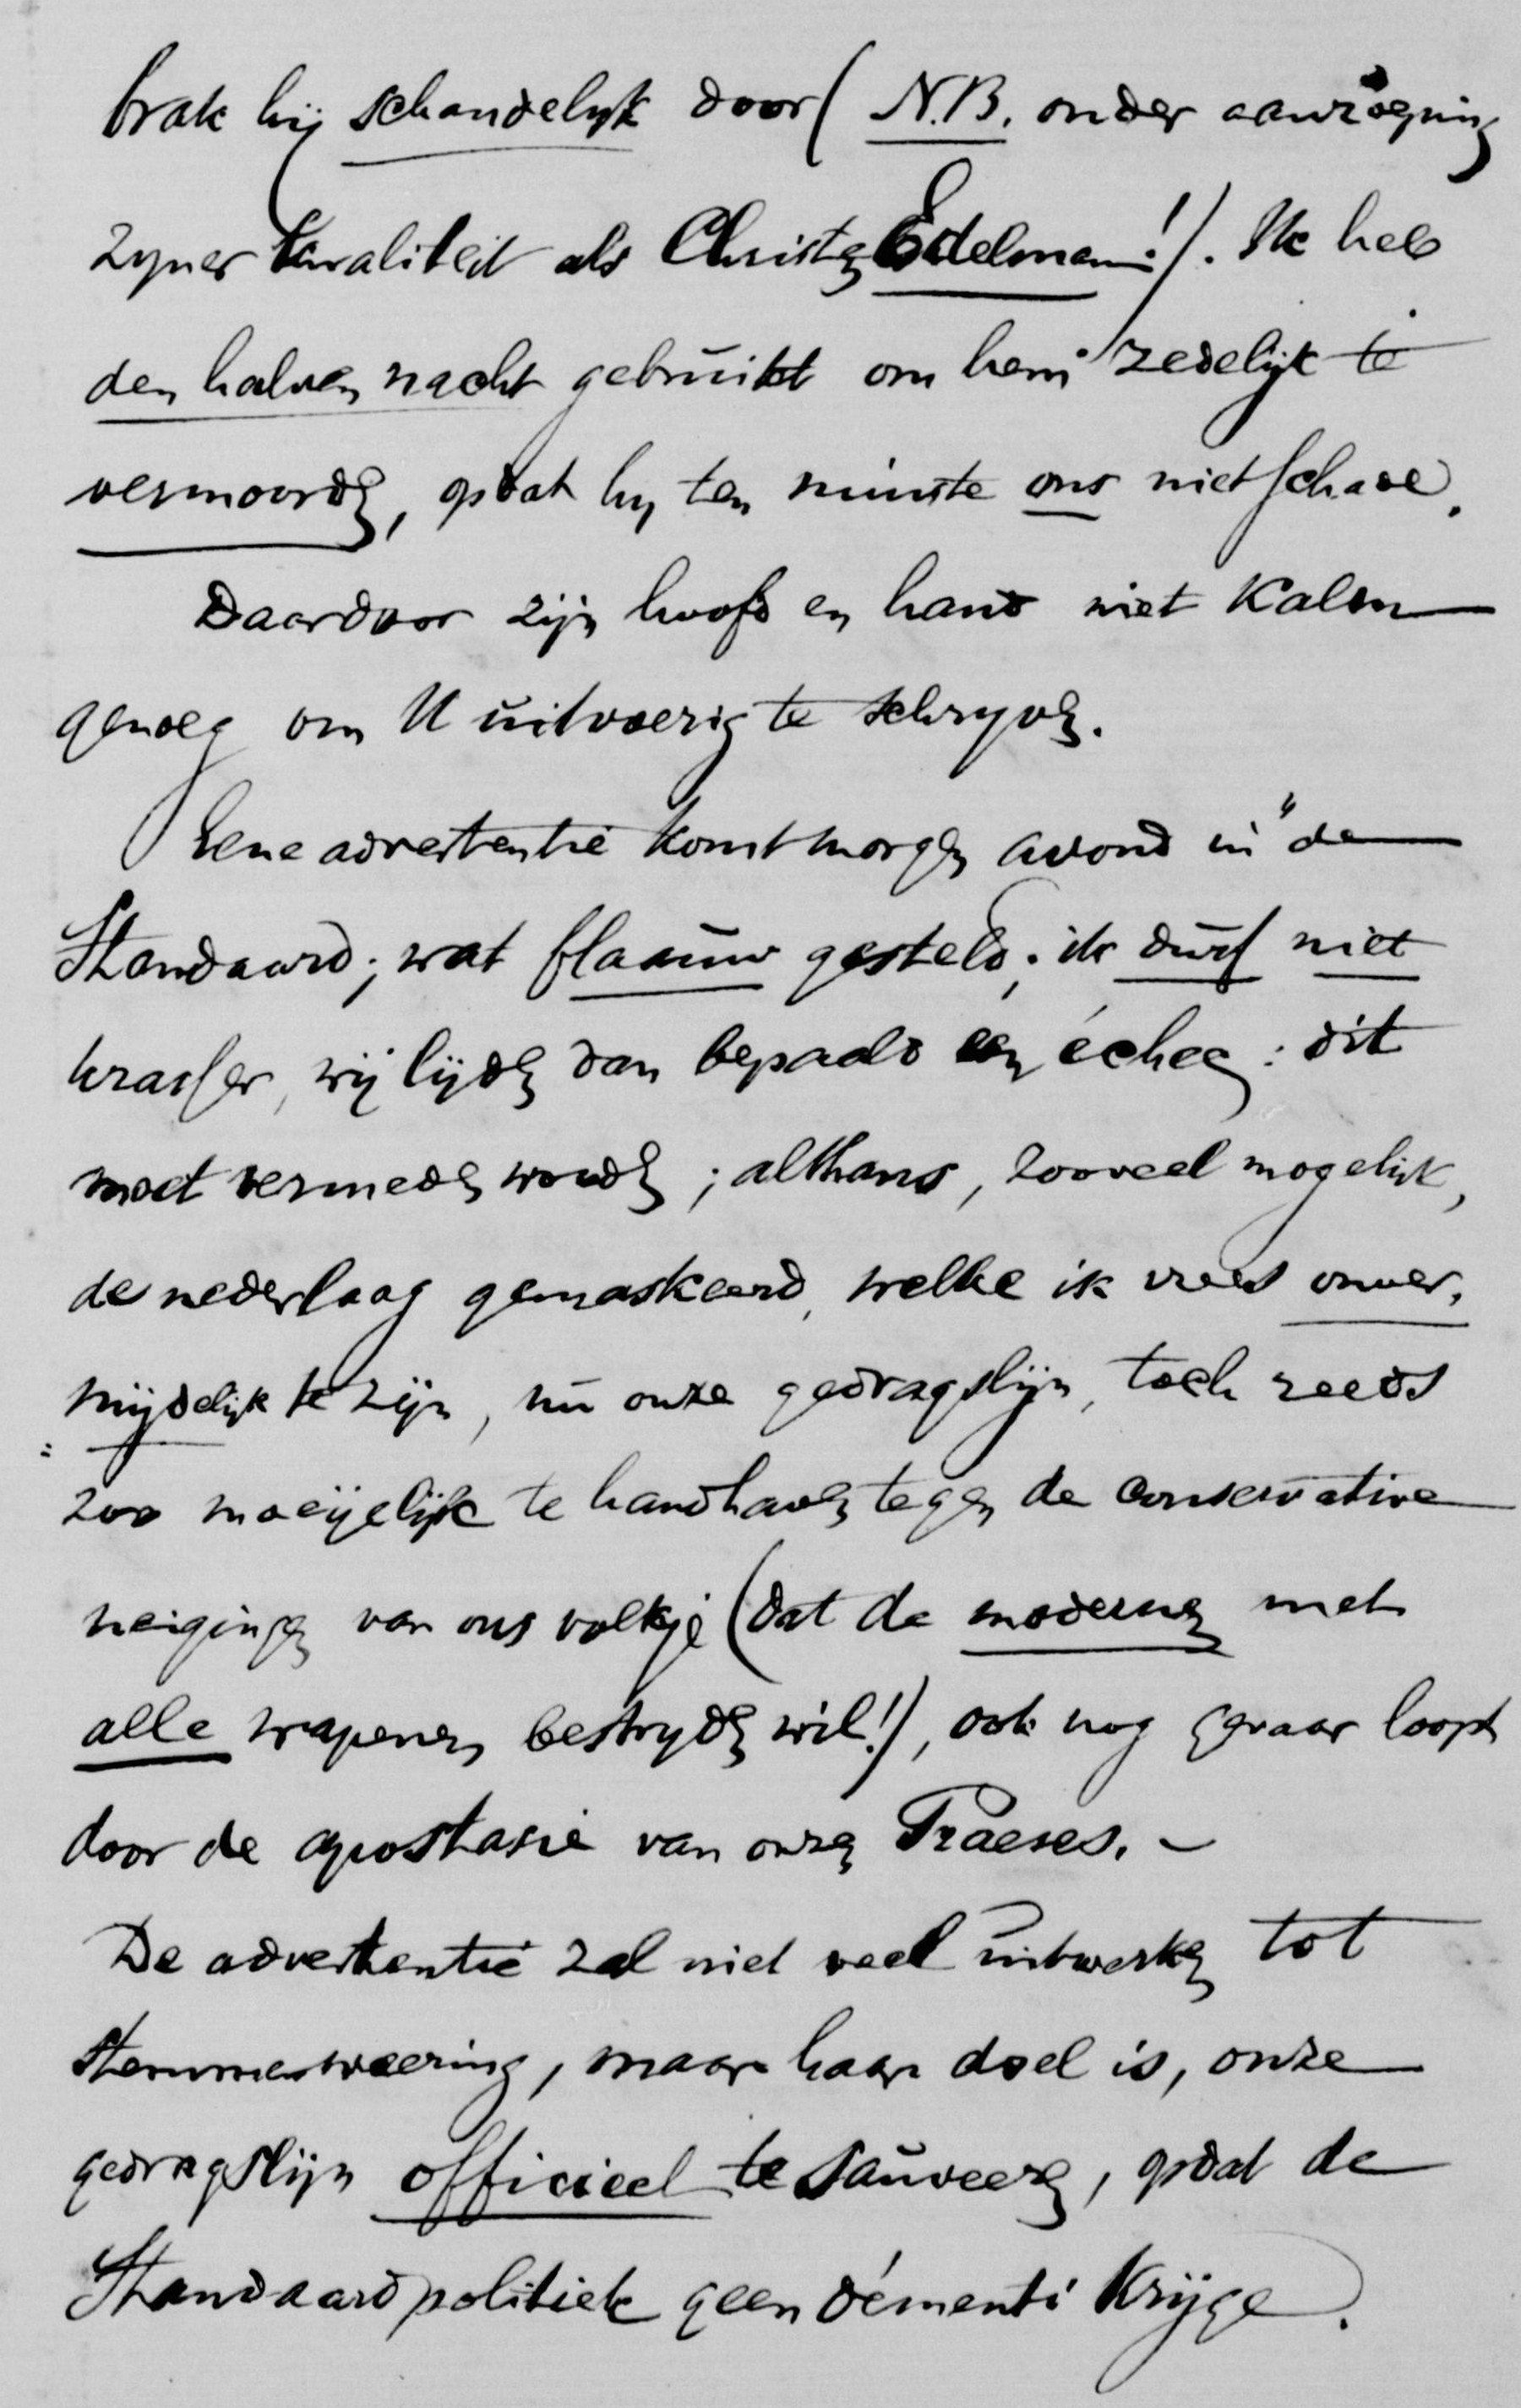 brak hij schandelijk door (N.B. onder aanroeping
zyner kwaliteit als Christen Edelman!). Ik heb
den halven nacht gebruikt om hem zedelijk te
vermoorden, opdat hy ten minste ons niet schade.
Daardoor zijn hoofd en hand niet kalm
genoeg om U uitvoerig te schryven.
Eene advertentie komt morgen avond in "de
Standaard; wat flaauw gesteld; ik durf niet
krasser, wij lijden dan bepaald een échec: dit
moet vermeden worden; althans, zooveel mogelijk,
de nederlaag gemaskeerd, welke ik vrees onver=
=mijdelijk te zijn, nu onze gedragslijn, toch reeds
zoo moeijelijk te handhaven tegen de conservative
neigingen van ons volkje (dat de modernen met
alle wapenen bestryden wil!), ook nog gevaar loopt
door de apostasie van onzen Praeses. –
De advertentie zal niet veel uitwerken tot
stemmenwerving, maar haar doel is, onze
gedragslijn officieel te sauveeren, opdat de
Standaardpolitiek geen démenti krijge.